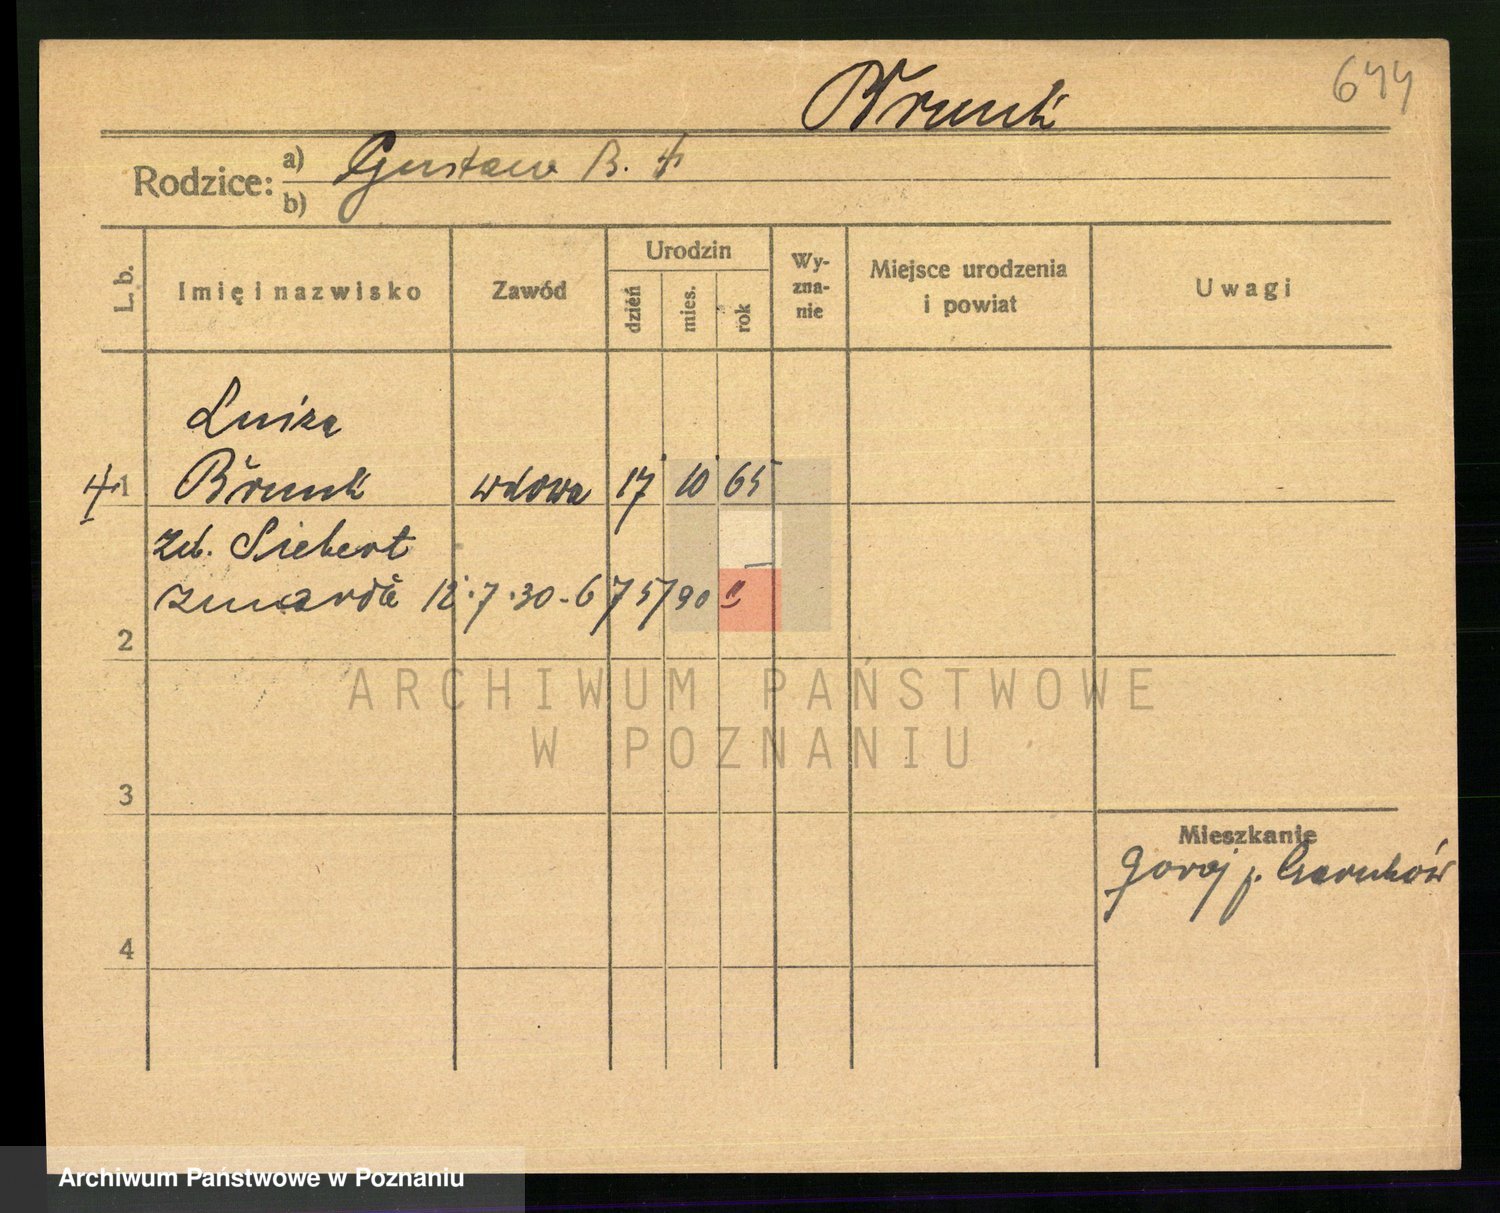 644
Brunk
Rodzice: a) Gustaw B. +
b)
L. b. Imię i nazwisko Zawód Urodzin dzień mies. rok Wy-zna-nie Miejsce urodzenia i powiat Uwagi
Luiza
+ 1 Brunk wdowa 17 10 65
zd. Siebert
zmarła 12.7.30 - 6757/90
2
ARCHIWUM PAŃSTWOWE
W POZNANIU
3
Mieszkanie
Goraj p. Czarnków
4
Archiwum Państwowe w Poznaniu